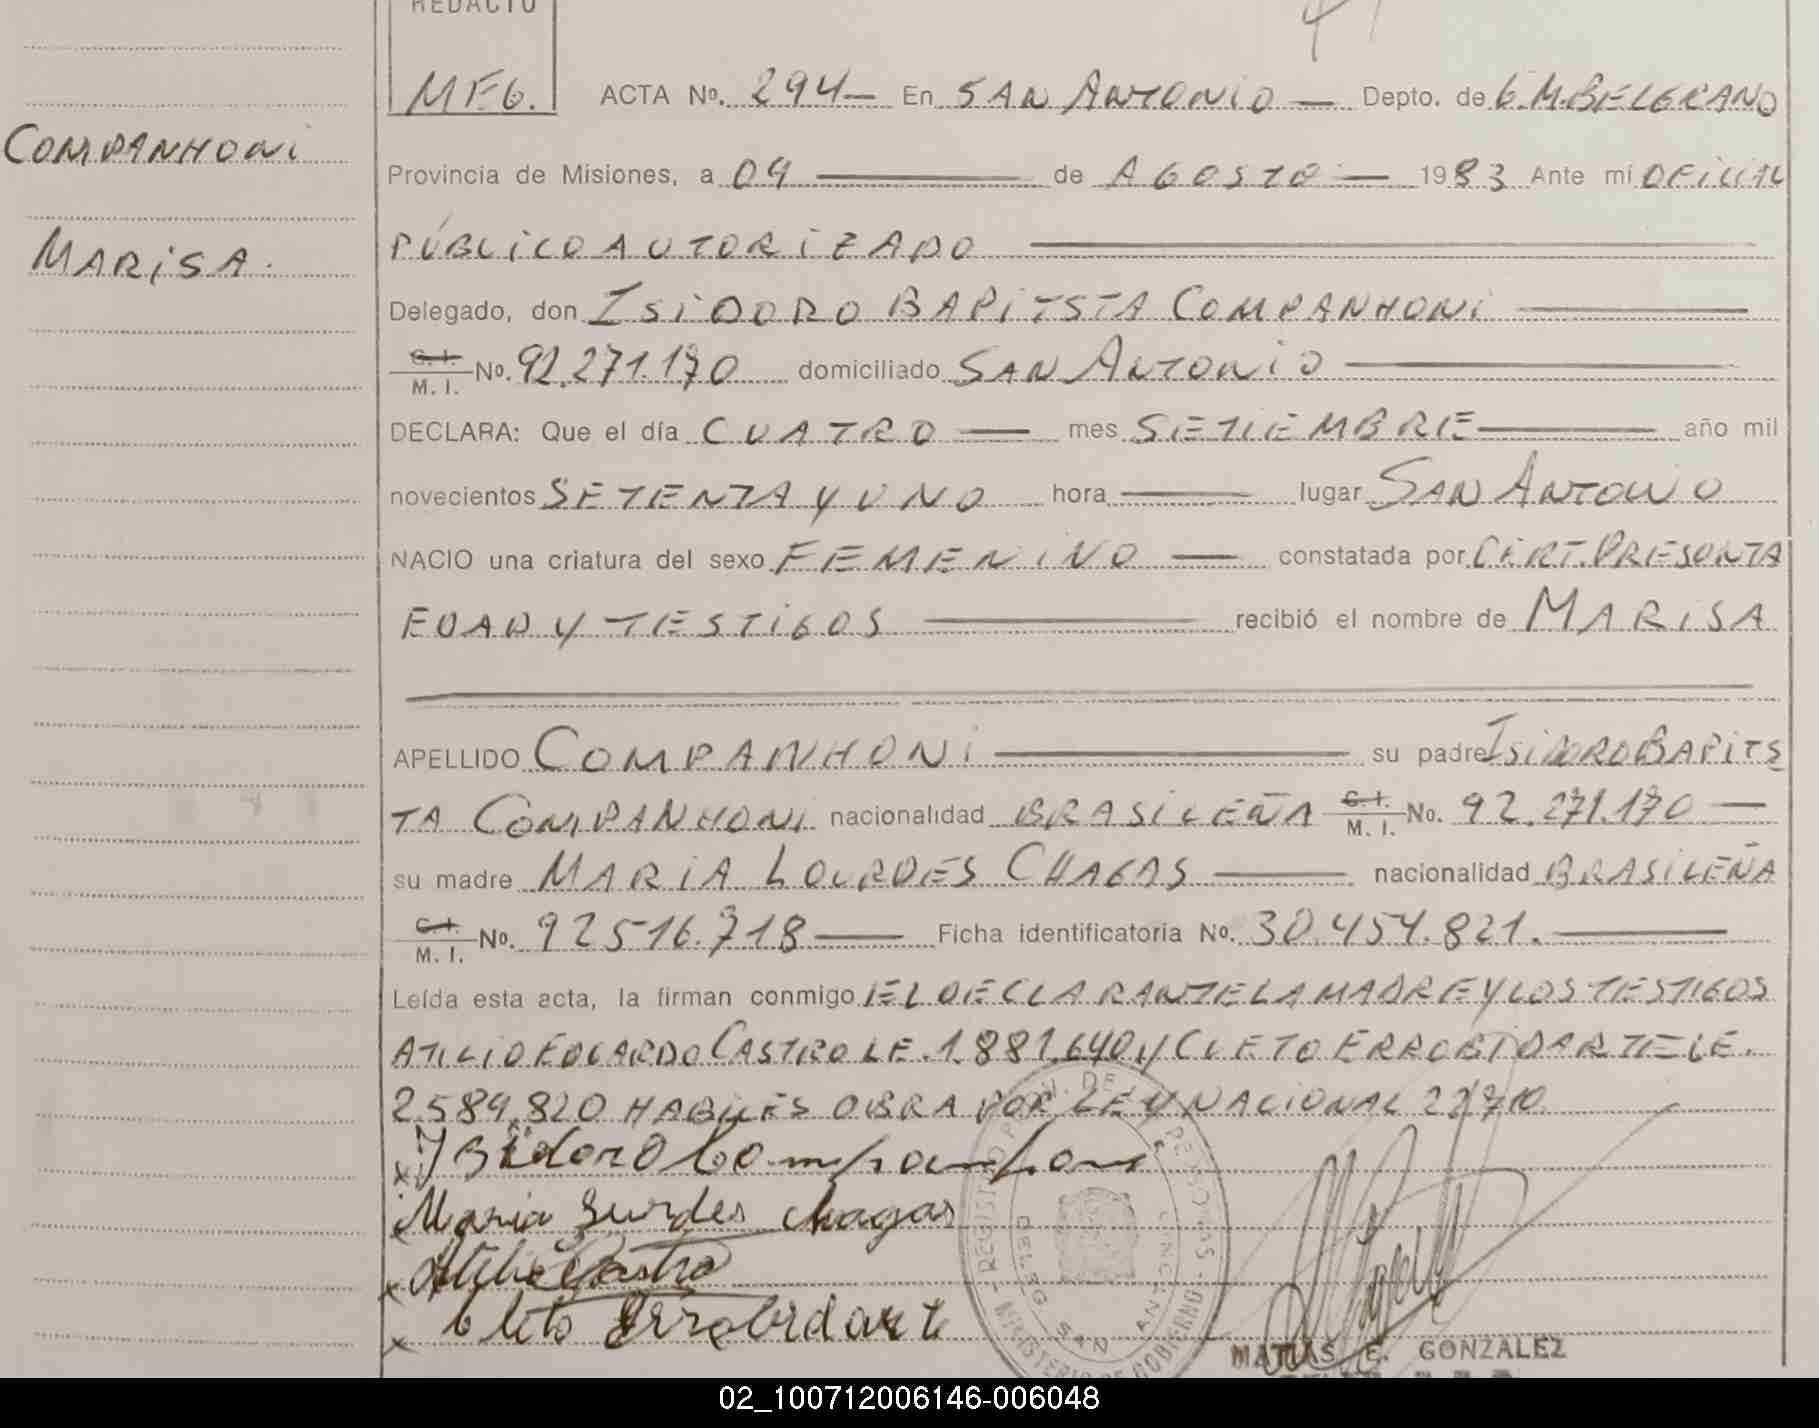 REDACTO
MEG. ACTA No. 294— En SAN ANTONIO — Depto. de G.M.BELGRANO
COMPANHONI
Provincia de Misiones, a 04 — de AGOSTO — 1983 Ante mí OFICIAL
PÚBLICO AUTORIZADO
MARISA.
Delegado, don ISIDORO BAPITSTA COMPANHONI
C.I. M. I. No. 92.271.170 domiciliado SAN ANTONIO
DECLARA: Que el día CUATRO — mes SETIEMBRE — año mil
novecientos SETENTA Y UNO hora — lugar SAN ANTONIO
NACIO una criatura del sexo FEMENINO — constatada por CERT. PRESONTA
EDAD Y TESTIGOS — recibió el nombre de MARISA
APELLIDO COMPANHONI — su padre ISIDORO BAPITS
TA COMPANHONI nacionalidad BRASILEÑA C.I. M. I. No. 92.271.170 —
su madre MARIA LOURDES CHAGAS — nacionalidad BRASILEÑA
C.I. M. I. No. 92516.718 — Ficha identificatoria No. 30.454.821. —
Leída esta acta, la firman conmigo EL DECLARANTE LA MADRE Y LOS TESTIGOS
ATILIO EDUARDO CASTRO LE. 1.881.640 y CLETO ERROBIDARTE LE.
2.584.820 HABILES OBRA POR LEY NACIONAL 22710.
x Isidoro Companhoni
Maria Lurdes chagas
x Atilio Castro
x Cleto Errobidarte
REGISTRO PROV. DE PERSONAS - MINISTERIO DE GOBIERNO -
DELEG SAN ANT
MATIAS E. GONZALEZ
02_100712006146-006048